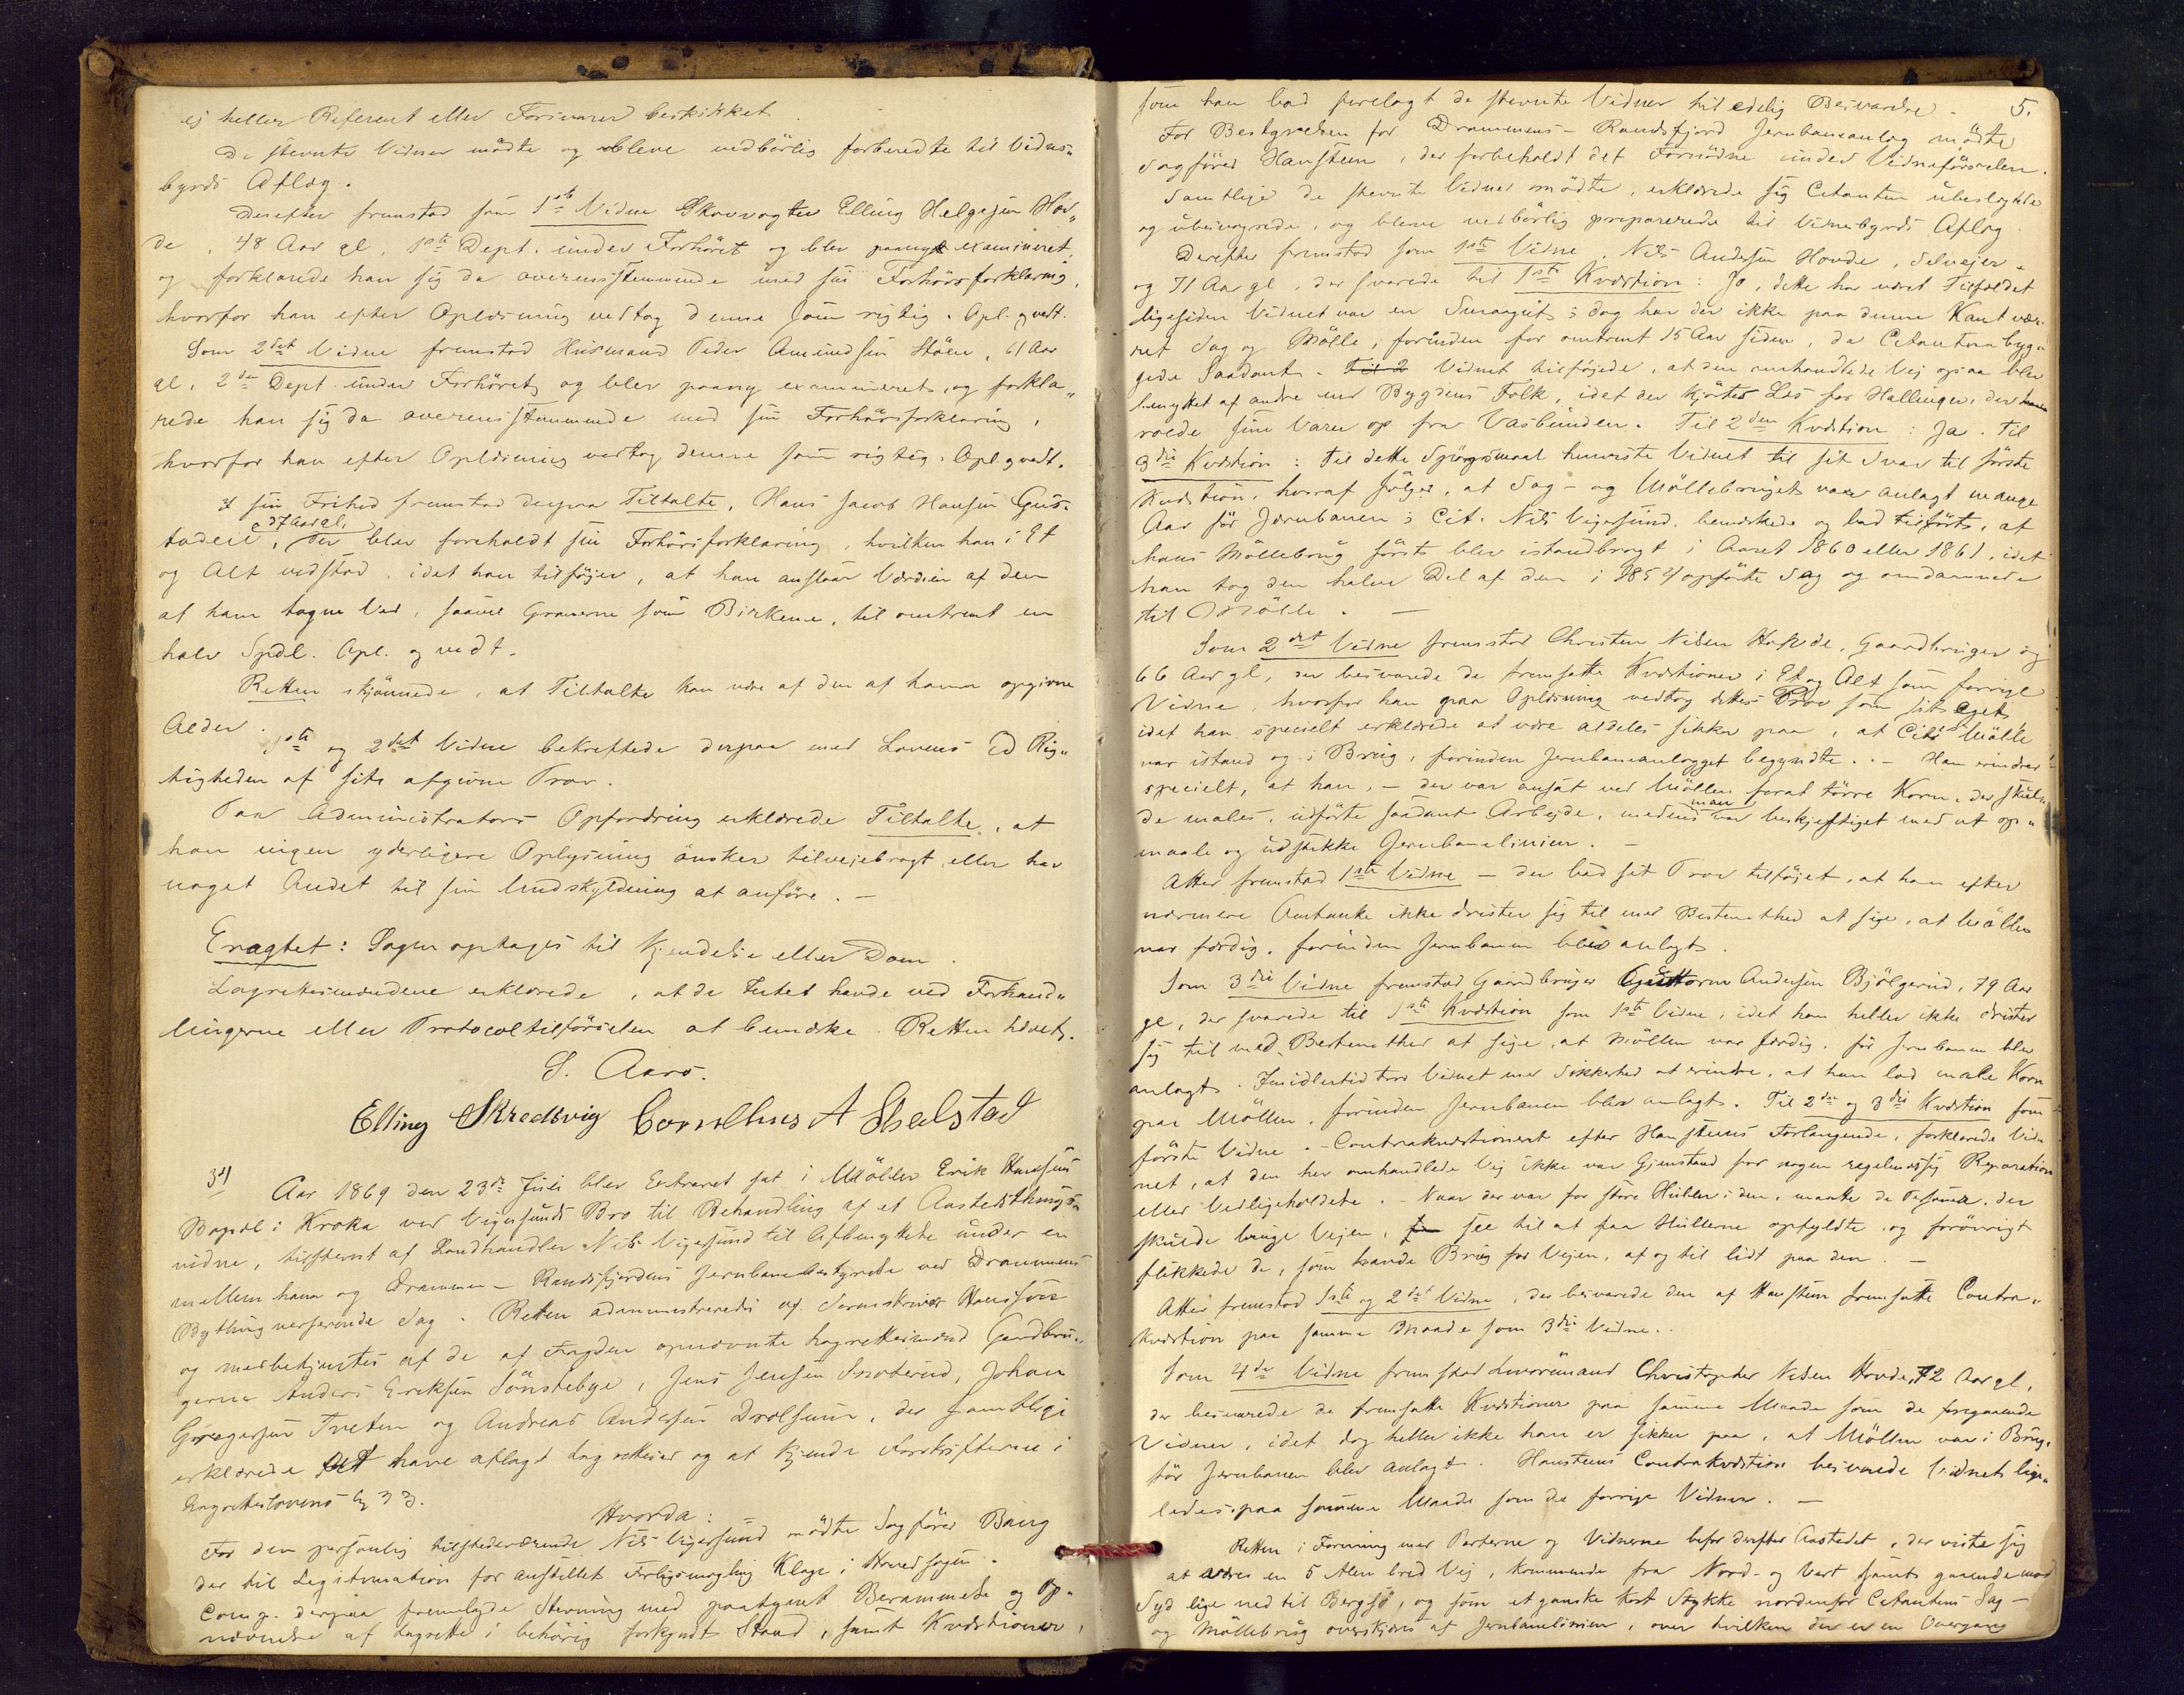 ej heller Referent eller Forsvarer beskikket.
De stevnte Vidner mödte og bleve vedbörlig forberedte til Vidnes-
byrds Aflæg.
Derefter fremstod som 1ste Vidne Skovvogter Elling Helgesen Hov-
de, 48 Aar gl. 1ste Dept. under Forhöret og blev paany examineret,
og forklarede han sig da overensstemmende med sin Forhörsforklaring,
hvorfor han efter Oplæsning vedtog denne som rigtig. Opl. g vedt.
Som 2det Vidne fremstod Husmand Peder Amundsen Støen, 61 Aar
gl. 2den Dept. under Forhöret og blev paany examineret, og forkla-
rede han sig da overensstemmende med sin Forhörsforklaring,
hvorfor han efter Oplæsning vedtog denne som rigtig. Opl. g vedt.
I sin Frihed fremstod derpaa Tiltalte, Hans Jacob Hansen Gus-
37 Aar gl.
tadeie, der blev foreholdt sin Forhörsforklaring, hvilken han i Et
og Alt vedstod, idet han tilföjer, at han anslaar Værdien af den
af ham tagne Ved, saavel Granerne som Birkene, til omtrent en
halv Spdl. Opl. og vedt.
Retten skjönnede, at Tiltalte kan være af den af ham opgivne
Alder.
1ste og 2det Vidne bekræftede derpaa med Lovens Ed Rig-
tigheden af sit afgivne Prov.
Paa Administrators Opfordring erklærede Tiltalte, at
han ingen yderligere Oplysning önsker tilvejebragt eller har
noget Andet til sin Undskyldning at anföre. —
Eragtet: Sagen optages til Kjendelse eller Dom.
Lagrettesmændene erklærede, at de Intet havde ved Forhand-
lingerne eller Protocoltilförselen at bemærke. Retten hævet.
S. Aars.
Elling Skredsvig Cornelius A Skalstad
3) Aar 1869 den 23de Juli blev Extraret sat i Möller Erik Hansens
Bopæl i Kroka ved Vigersunds Bro til Behandling af et Aastedsthings-
vidne, tilstevnt af Landhandler Nils Vigersund til Afbenyttelse under en
mellem ham og Drammen-Randsfjordens Jernbanebestyrelse ved Drammens
Bything verserende Sag. Retten administreredes af Sorenskriver
og medbetjentes af de af Fogden opnævnte Lagrettesmænd Gaardbru-
gerne Anders Eriksen Sönstebye, Jens Jensen Snoterud, Johan
Gregersen Tveten og Andreas Andersen Drolsum, der samtlige
erklærede at have aflagt Lagretteseed og at kjende Forskrifterne i
Lagretteslovens § 33.
Hvorda:
For den personlig tilstedeværende Nils Vigersund mödte Sagförer Bang
der til Legitimation for anstillet Forligsmægling Klage i Hovedsagen.
Comp. derpaa fremlagde Stevning med paategnet Berammelse og Op-
nævnelse af Lagrette i behörig forkyndt Stand, samt Kvæstioner,
5.
som han bad forelagt de stevnte Vidner til edelig Besvarelse.
For Bestyrelsen for Drammens-Randsfjord Jernbaneanlæg mödte
Sagförer Hansteen, der forbeholdt det Fornödne under Vidneförselen.
Samtlige de stevnte Vidner mödte, erklærede sig Citanten ubeslægtede
og ubesvogrede, og bleve vedbörlig præparerede til Vidnesbyrds Aflæg.
Derefter fremstod som 1ste Vidne, Nils Andersen Hovde, Selvejer,
og 71 Aar gl, der svarede til 1ste Kvæstion: Ja, dette har været Tilfældet
ligesiden Vidnet var en Smaagut; dog har der ikke paa denne Kant vær-
ret Sag og Mölle, förinden for omtrent 15 Aar siden, da Citanten byg-
gede Saadant. Til 2 Vidnet tilföjede, at den omhandlede Vej ogsaa blev
benyttet af andre end Bygdens Folk, idet der kjörtes Læs for Hallinger, der
roede sine Varer op fra Vasbunden. Til 2den Kvæstion: Ja. Til
3die Kvæstion: Til dette Spörgsmaal henviste Vidnet til sit Svar til förste
Kvæstion, hvoraf fölger, at Sag- og Möllebruget var anlagt mange
Aar för Jernbanen; Cit. Nils Vigersund bemærkede og bad tilfört, at
hans Möllebrug först blev istandbragt i Aaret 1860 eller 1861, idet
han tog den halve Del af den i 1854 opförte Sag og omdannede
til Mölle. —
Som 2det Vidne fremstod Christen Nilsen Hovde, Gaardbruger og
66 Aar gl, der besvarede de fremsatte Kvæstioner i Et og Alt som forrige
Vidne, hvorfor han paa Oplæsning vedtog dettes Prov som sit eget,
idet han specielt erklærede at være aldeles sikker paa, at Cits Mölle
var istand og i Brug, förinden Jernbaneanlægget begyndte. — Han erindrer
specielt, at han, — der var ansat ved Möllen forat törre Korn, der skul-
de males, udförte saadant Arbejde, medens man var beskjeftiget med at op-
maale og udstikke Jernbanelinien. —
Atter fremstod 1ste Vidne — der bad sit Prov tilföjet, at han efter
nærmere Omtanke ikke drister sig til med Bestemthed at sige, at Möllen
var færdig, förinden Jernbanen blev anlagt.
Som 3die Vidne fremstod Gaardbruger Guttorm Andersen Bjölgerud, 79 Aar
gl, der svarede til 1ste Kvæstion som 1ste Vidne, idet han heller ikke drister
sig til med Bestemthed at sige, at Möllen var færdig, för Jernbanen blev
anlagt. Imidlertid tror Vidnet med Sikkerhed at erindre, at han lod male Korn
paa Möllen, förinden Jernbanen blev anlagt. Til 2de og 3die Kvæstion som
förste Vidne. — Contrakvæstioneret efter Hansteens Forlangende, forklarede Vid-
net, at den her omhandlede Vej ikke var Gjenstand for nogen regelmæssig Reparation
eller Vedligeholdelse. — Naar der var for store Huller i den, maatte de Personer, der
skulde bruge Vejen, see til at faa Hullerne opfyldte og forövrigt
flikkede de, som havde Brug for Vejen, af og til lidt paa den. —
Atter fremstod 1ste og 2det Vidne, der besvarede den af Hansteen fremsatte Contra-
kvæstion paa samme Maade som 3die Vidne.
Som 4de Vidne fremstod Christopher Nilsen Hovde, 72 Aar gl,
der besvarede de fremsatte Kvæstioner paa samme Maade som de foregaaende
Vidner, idet dog heller ikke han er sikker paa, at Möllen var i Brug,
för Jernbanen blev anlagt. Hansteens Contrakvæstion besvarede Vidnet lige-
ledes paa samme Maade som de forrige Vidner. —
Retten i Forening med Parterne og Vidnerne befor derefter Aastedet, der viste sig
at være en 5 Alen bred Vej, kommende fra Nord- og Vest samt gaaende mod
Syd lige ned til Bergsö, og som et ganske kort Stykke nordenfor Citantens Sag-
og Möllebrug overskjæres af Jernbanelinien, over hvilken der er en Overgang